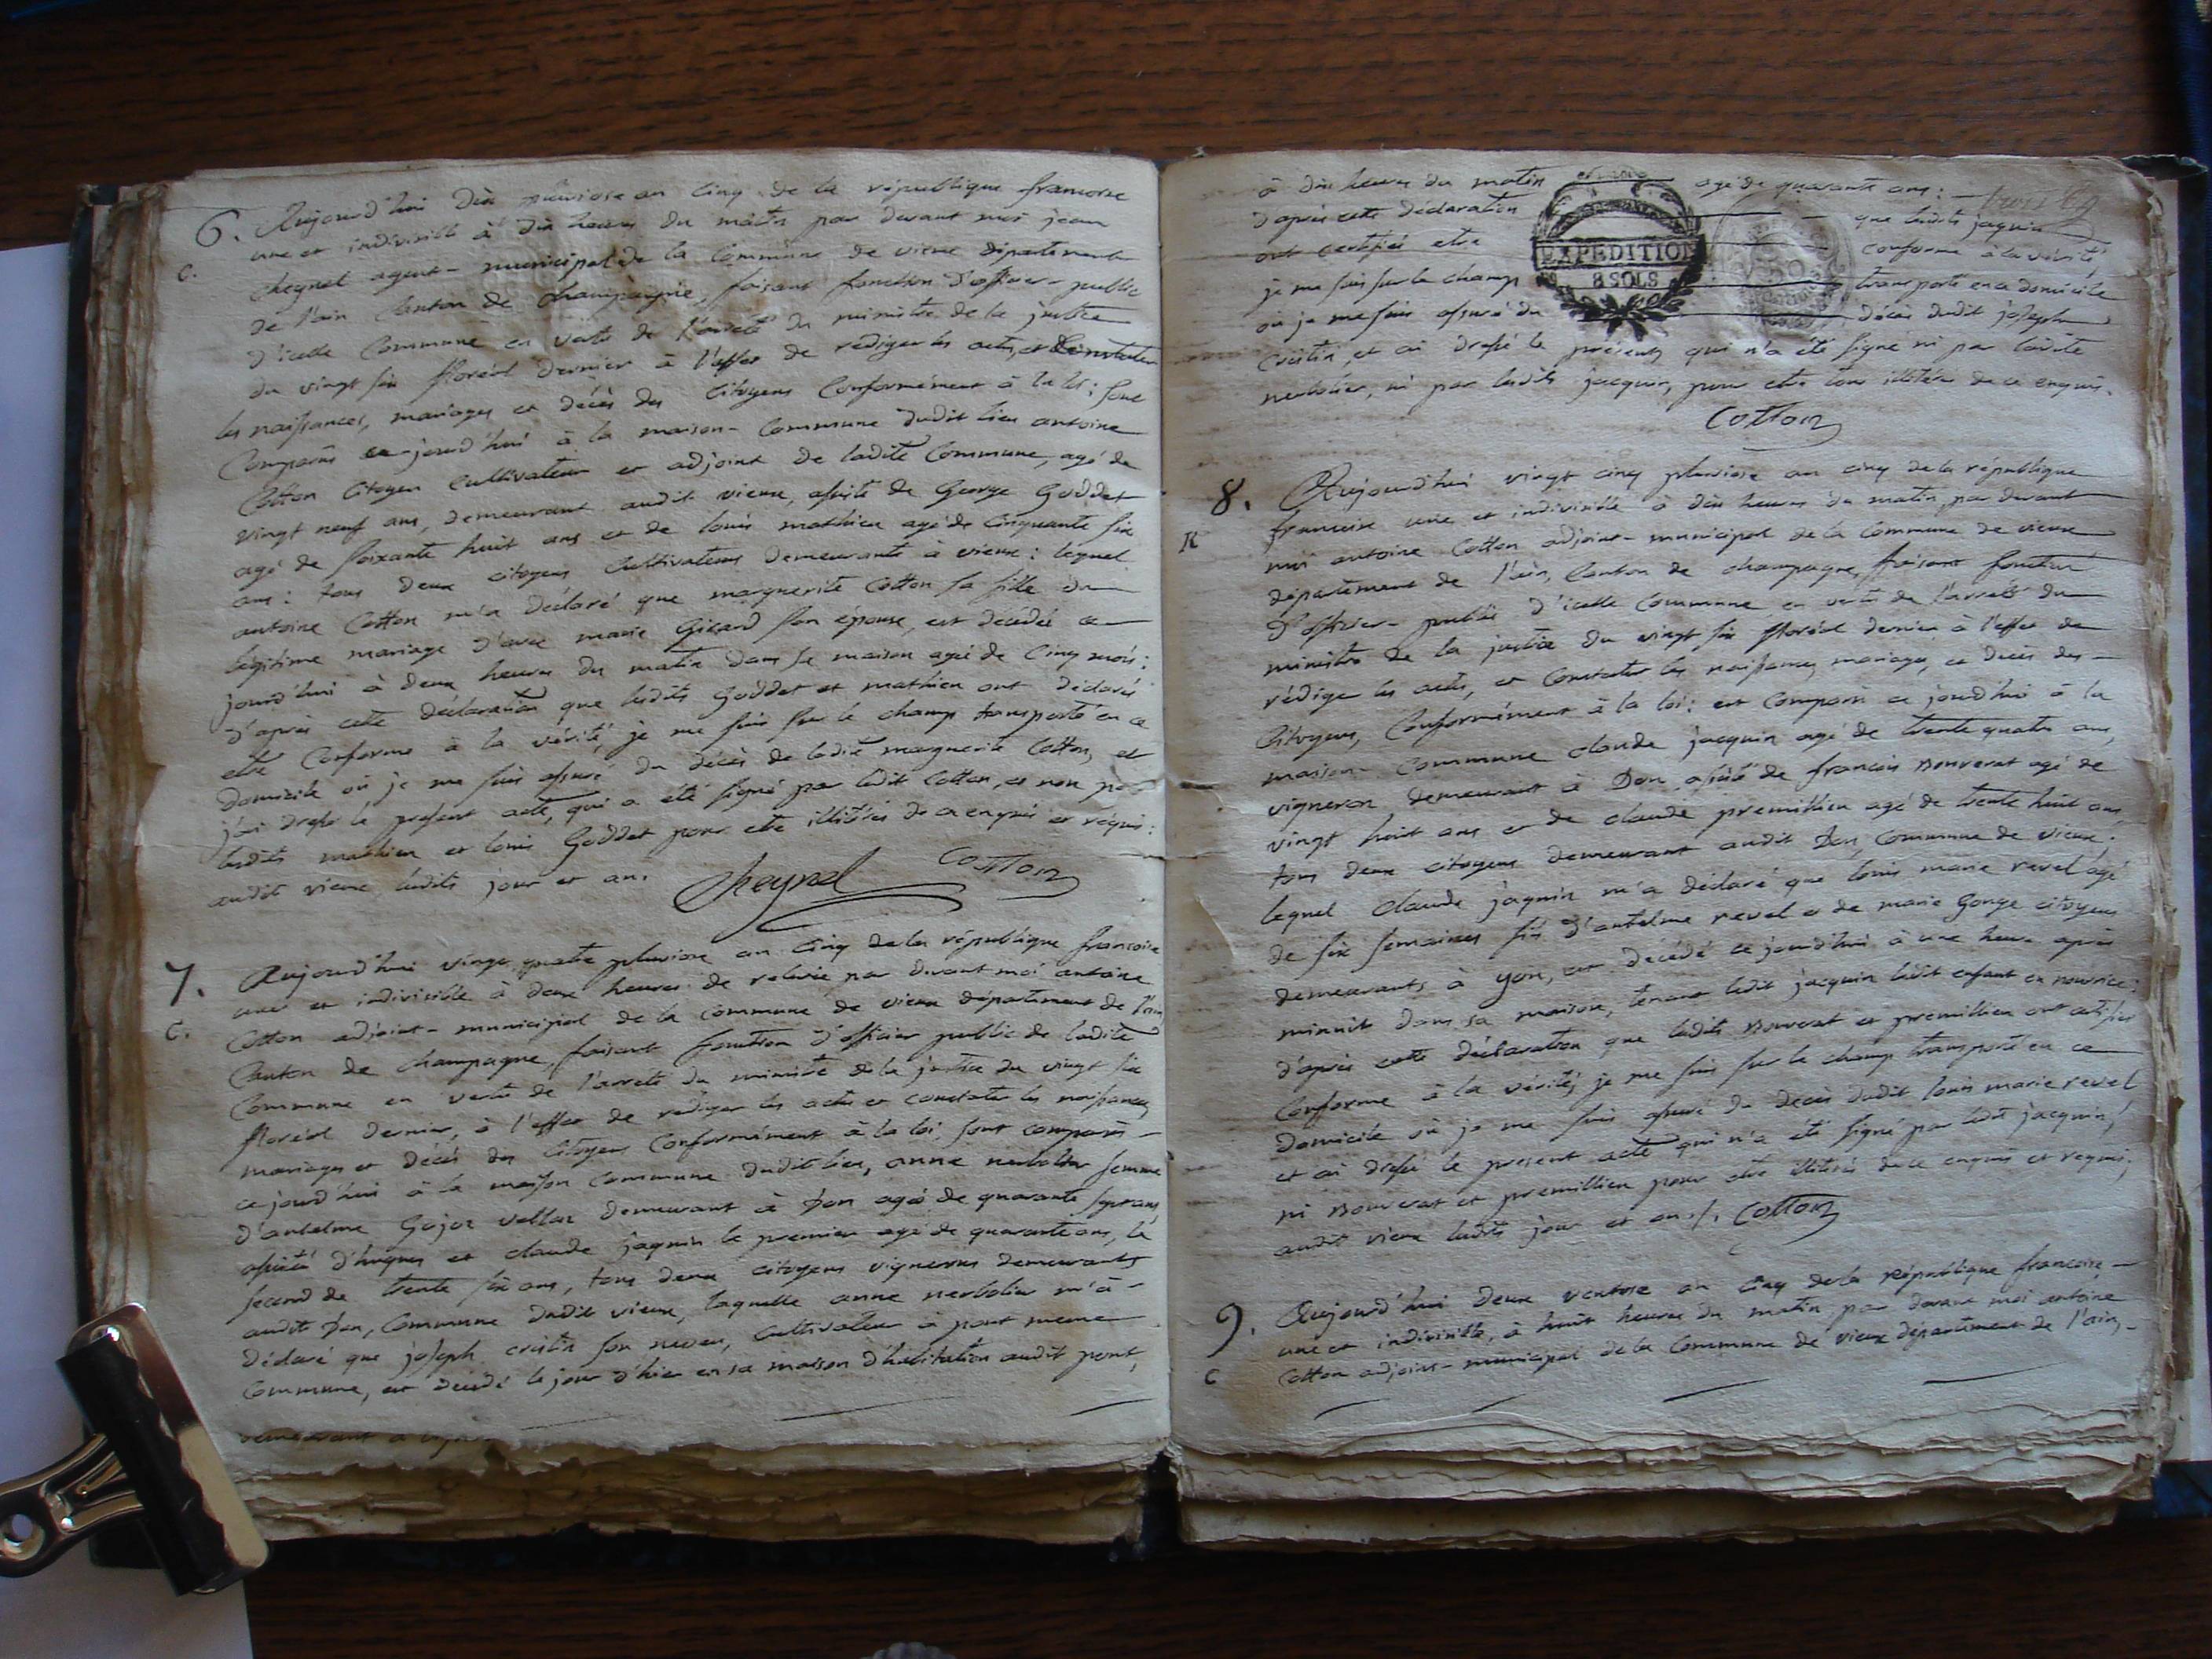 6. Aujourd'hui dix pluviose an cinq de la république francoise
une et indivisible à dix heures du matin par devant moi jean
C. cheynel agent municipal de la commune de vieux département
de l'ain canton de champagne, faisant fonction d'officier public
d'icelle commune en vertu de l'arreté du ministre de la justice
du vingt six floréal dernier à l'effet de rediger les actes, et constater
les naissances, mariages et décès des citoyens conformément à la loi: sont
comparus ce jourd'hui à la maison commune dudit lieu antoine
Cotton citoyen cultivateur et adjoint de ladite commune, agé de
vingt neuf ans, demeurant audit vieux, assisté de George Goddet
agé de soixante huit ans et de louis mathieu agé de cinquante six
ans: tous deux citoyens cultivateurs demeurants à vieux: lequel
antoine Cotton m'a déclaré que marguerite Cotton sa fille du
légitime mariage d'avec marie Girard son épouse, est décédée ce
jourd'hui à deux heures du matin dans sa maison agée de cinq mois:
d'après cette déclaration que lesdits Goddet et mathieu ont déclarés
etre conforme à la vérité, je me suis sur le champ transporté en ce
domicile où je me suis assuré du décès de ladite marguerite Cotton, et
j'ai dressé le present acte, qui a été signé par ledit Cotton, et non par
lesdits mathieu et louis Goddet pour etre illitérés de ce enquis et requis:
audit vieux lesdits jour et an. Cheynel Cotton
7. Aujourd'hui vingt quatre pluviose an cinq de la république francoise
une et indivisible à deux heures de relevée par devant moi antoine
C. Cotton adjoint municipal de la commune de vieux département de l'ain
Canton de champagne, faisant fonction d'officier public de ladite
Commune en vertu de l'arreté du ministre de la justice du vingt six
floréal dernier, à l'effet de rediger les actes et constater les naissances
mariages et décès des citoyens conformément à la loi sont comparus
ce jourd'hui à la maison commune dudit lieu, anne nerbolier femme
d'antelme Gojoz vellaz demeurant à Don agée de quarante sept ans
assistée d'hugues et claude jaquin le premier agé de quarante ans, le
second de trente six ans, tous deux citoyens vignerons demeurants
audit Don, commune dudit vieux, laquelle anne nerbolier m'a
déclaré que joseph son neveu, cultivateur à pont meme
commune, est décédé le jour d'hier en sa maison d'habitation audit pont,
à dix heures du matin agé de quarante ans:
d'après cette déclaration que lesdits jaquin
ont certifiés etre conforme à la vérité,
EXPEDITION
8 SOLS
je me suis sur le champ transporté en ce domicile
où je me suis assuré du décès dudit joseph
et ai dressé le présent, qui n'a été signé ni par ladite
nerbolier, ni par lesdits jacquin, pour etre tous illitérés de ce enquis.
Cotton
8. Aujourd'hui vingt cinq pluviose an cinq de la république
francoise une et indivisible à dix heures du matin, par devant
R moi antoine Cotton adjoint municipal de la commune de vieux
département de l'ain, Canton de champagne, faisant fonction
d'officier public d'icelle commune en vertu de l'arreté du
ministre de la justice du vingt six floréal dernier à l'effet de
rédiger les actes, et constater les naissances, mariages, et décès des
citoyens, conformément à la loi: est comparu ce jourd'hui à la
maison commune claude jacquin agé de trente quatre ans,
vigneron demeurant à Don, assisté de francois Bonverat agé de
vingt huit ans et de claude premillieu agé de trente huit ans
tous deux citoyens demeurant audit Don, commune de vieux;
lequel claude jaquin m'a déclaré que louis marie revel agé
de six semaines fils d'antelme revel et de marie Gonge citoyens
demeurants à yon, est décédé ce jourd'hui à une heure après
minuit dans sa maison, tenant ledit jacquin ledit enfant en nourrice:
d'après cette déclaration que lesdits Bonverat et premillieu ont certifiés
conforme à la vérité, je me suis sur le champ transporté en ce
domicile où je me suis assuré du décès dudit louis marie revel
et ai dressé le présent acte qui n'a été signé par ledit jacquin,
ni Bonverat et premillieu pour etre illitérés de ce enquis et requis;
audit vieux lesdits jour et an. Cotton
9. Aujourd'hui deux ventose an cinq de la république francoise
une et indivisible, à huit heures du matin par devant moi antoine
C Cotton adjoint municipal de la commune de vieux département de l'ain